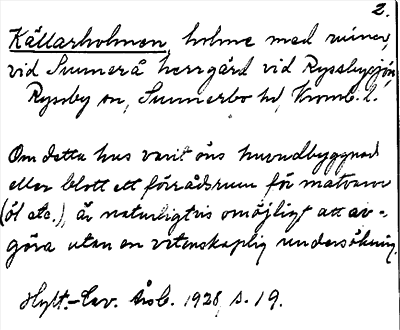 2.
Källarholmen, holme med ruiner,
vid Sunnerå herrgård vid Ryssbysjön,
Ryssby sn, Sunnerbo hd, Kronob. l.
Om detta hus varit öns huvudbyggnad
eller blott ett förrådsrum för matvaror
(öl etc.), är naturligtvis omöjligt att av-
göra utan en vetenskaplig undersökning.
Hylt.-Cav. Årsb. 1928, s. 19.